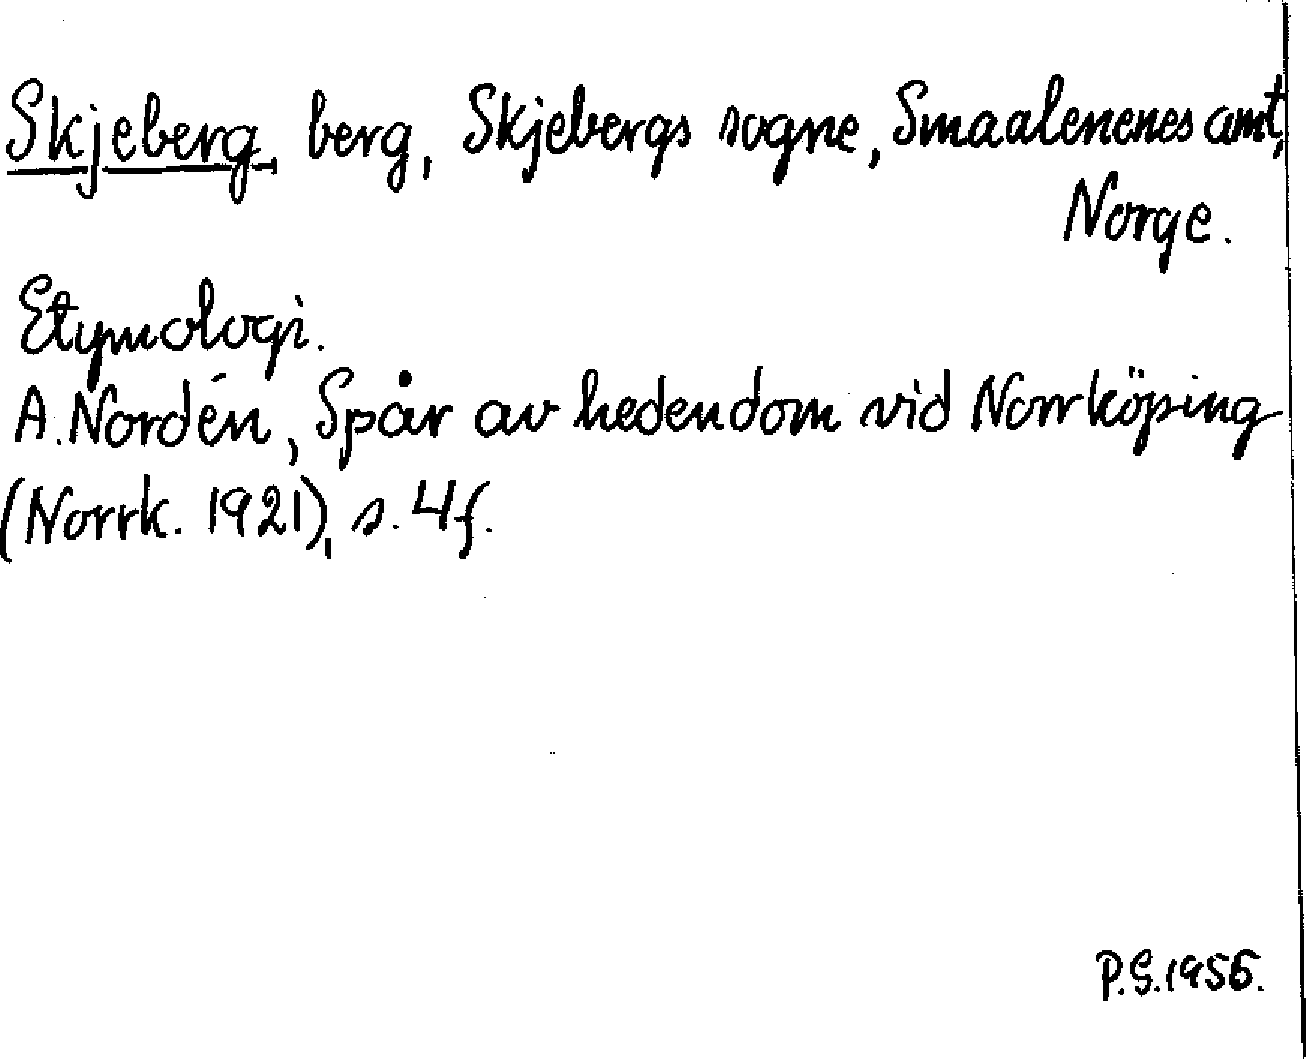 Skjeberg, berg, Skjebergs sogne, Smaalenenes amt,
Norge.
Etymologi.
A. Nordén, Spår av hedendom vid Norrköping
(Norrk. 1921), s. 4f.
P.G. 1956.